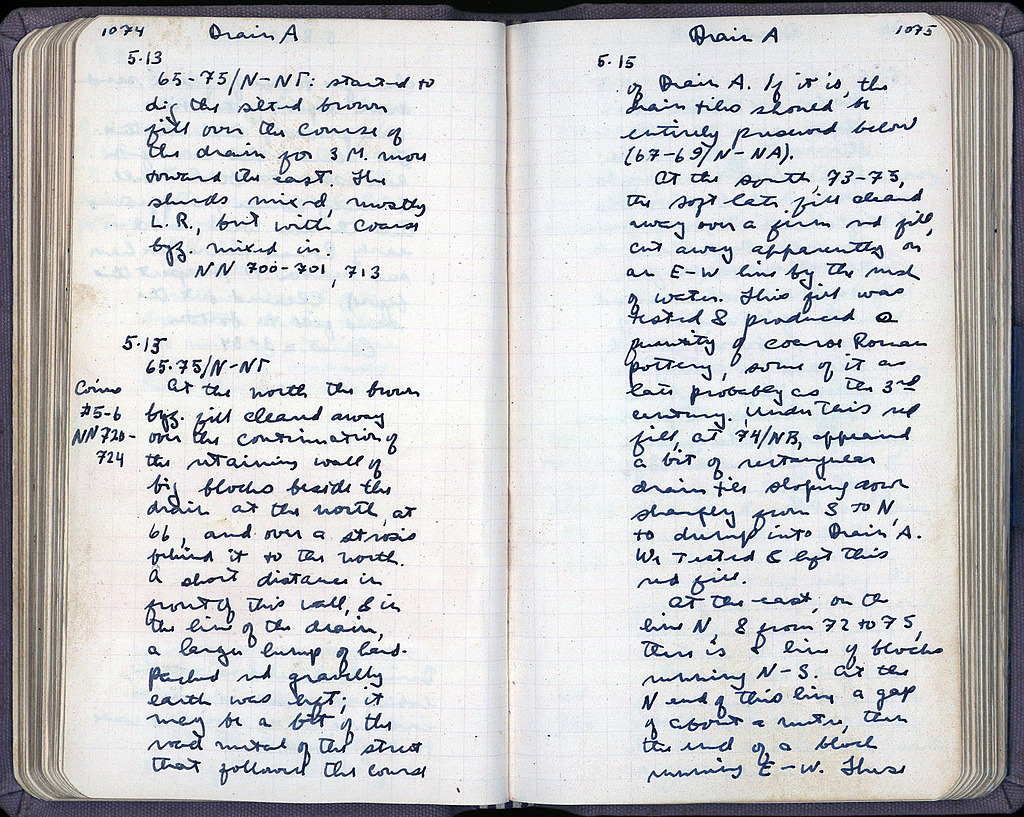 1074 Drain A
5.13
65-75/N-NΓ: started to
dig the silted brown
fill over the course of
the drain for 3 M. more
toward the east. The
sherds mixed, mostly
L.R., but with coarse
byz. mixed in.
NN 700-701, 713
5.15
65-75/N-NΓ
Coins
#5-6
NN 720-
724
At the north the brown
byz. fill cleared away
over the continuation of
the retaining wall of
big blocks beside the
drain at the north, at
66, and over a strosis
behind it to the north.
A short distance in
front of this wall, & in
the line of the drain,
a large lump of hard-
packed red gravelly
earth was left; it
may be a bit of the
road metal of the street
that followed the course
Drain A 1075
5.15
of Drain A. If it is, the
drain tiles should be
entirely preserved below
(67-69/N-NA).
At the south, 73-75,
the soft late fill cleared
away over a firm red fill,
cut away apparently on
an E-W line by the rush
of water. This fill was
tested & produced a
quantity of coarse Roman
pottery, some of it as
late probably as the 3rd
century. Under this red
fill, at 74/NB, appeared
a bit of rectangular
drain tile sloping down
sharply from S to N,
to dump into Drain A.
We tested & left this
red fill.
At the east, on the
line N, & from 72 to 75,
there is a line of blocks
running N-S. At the
N end of this line a gap
of about a metre, then
the end of a block
running E-W. These